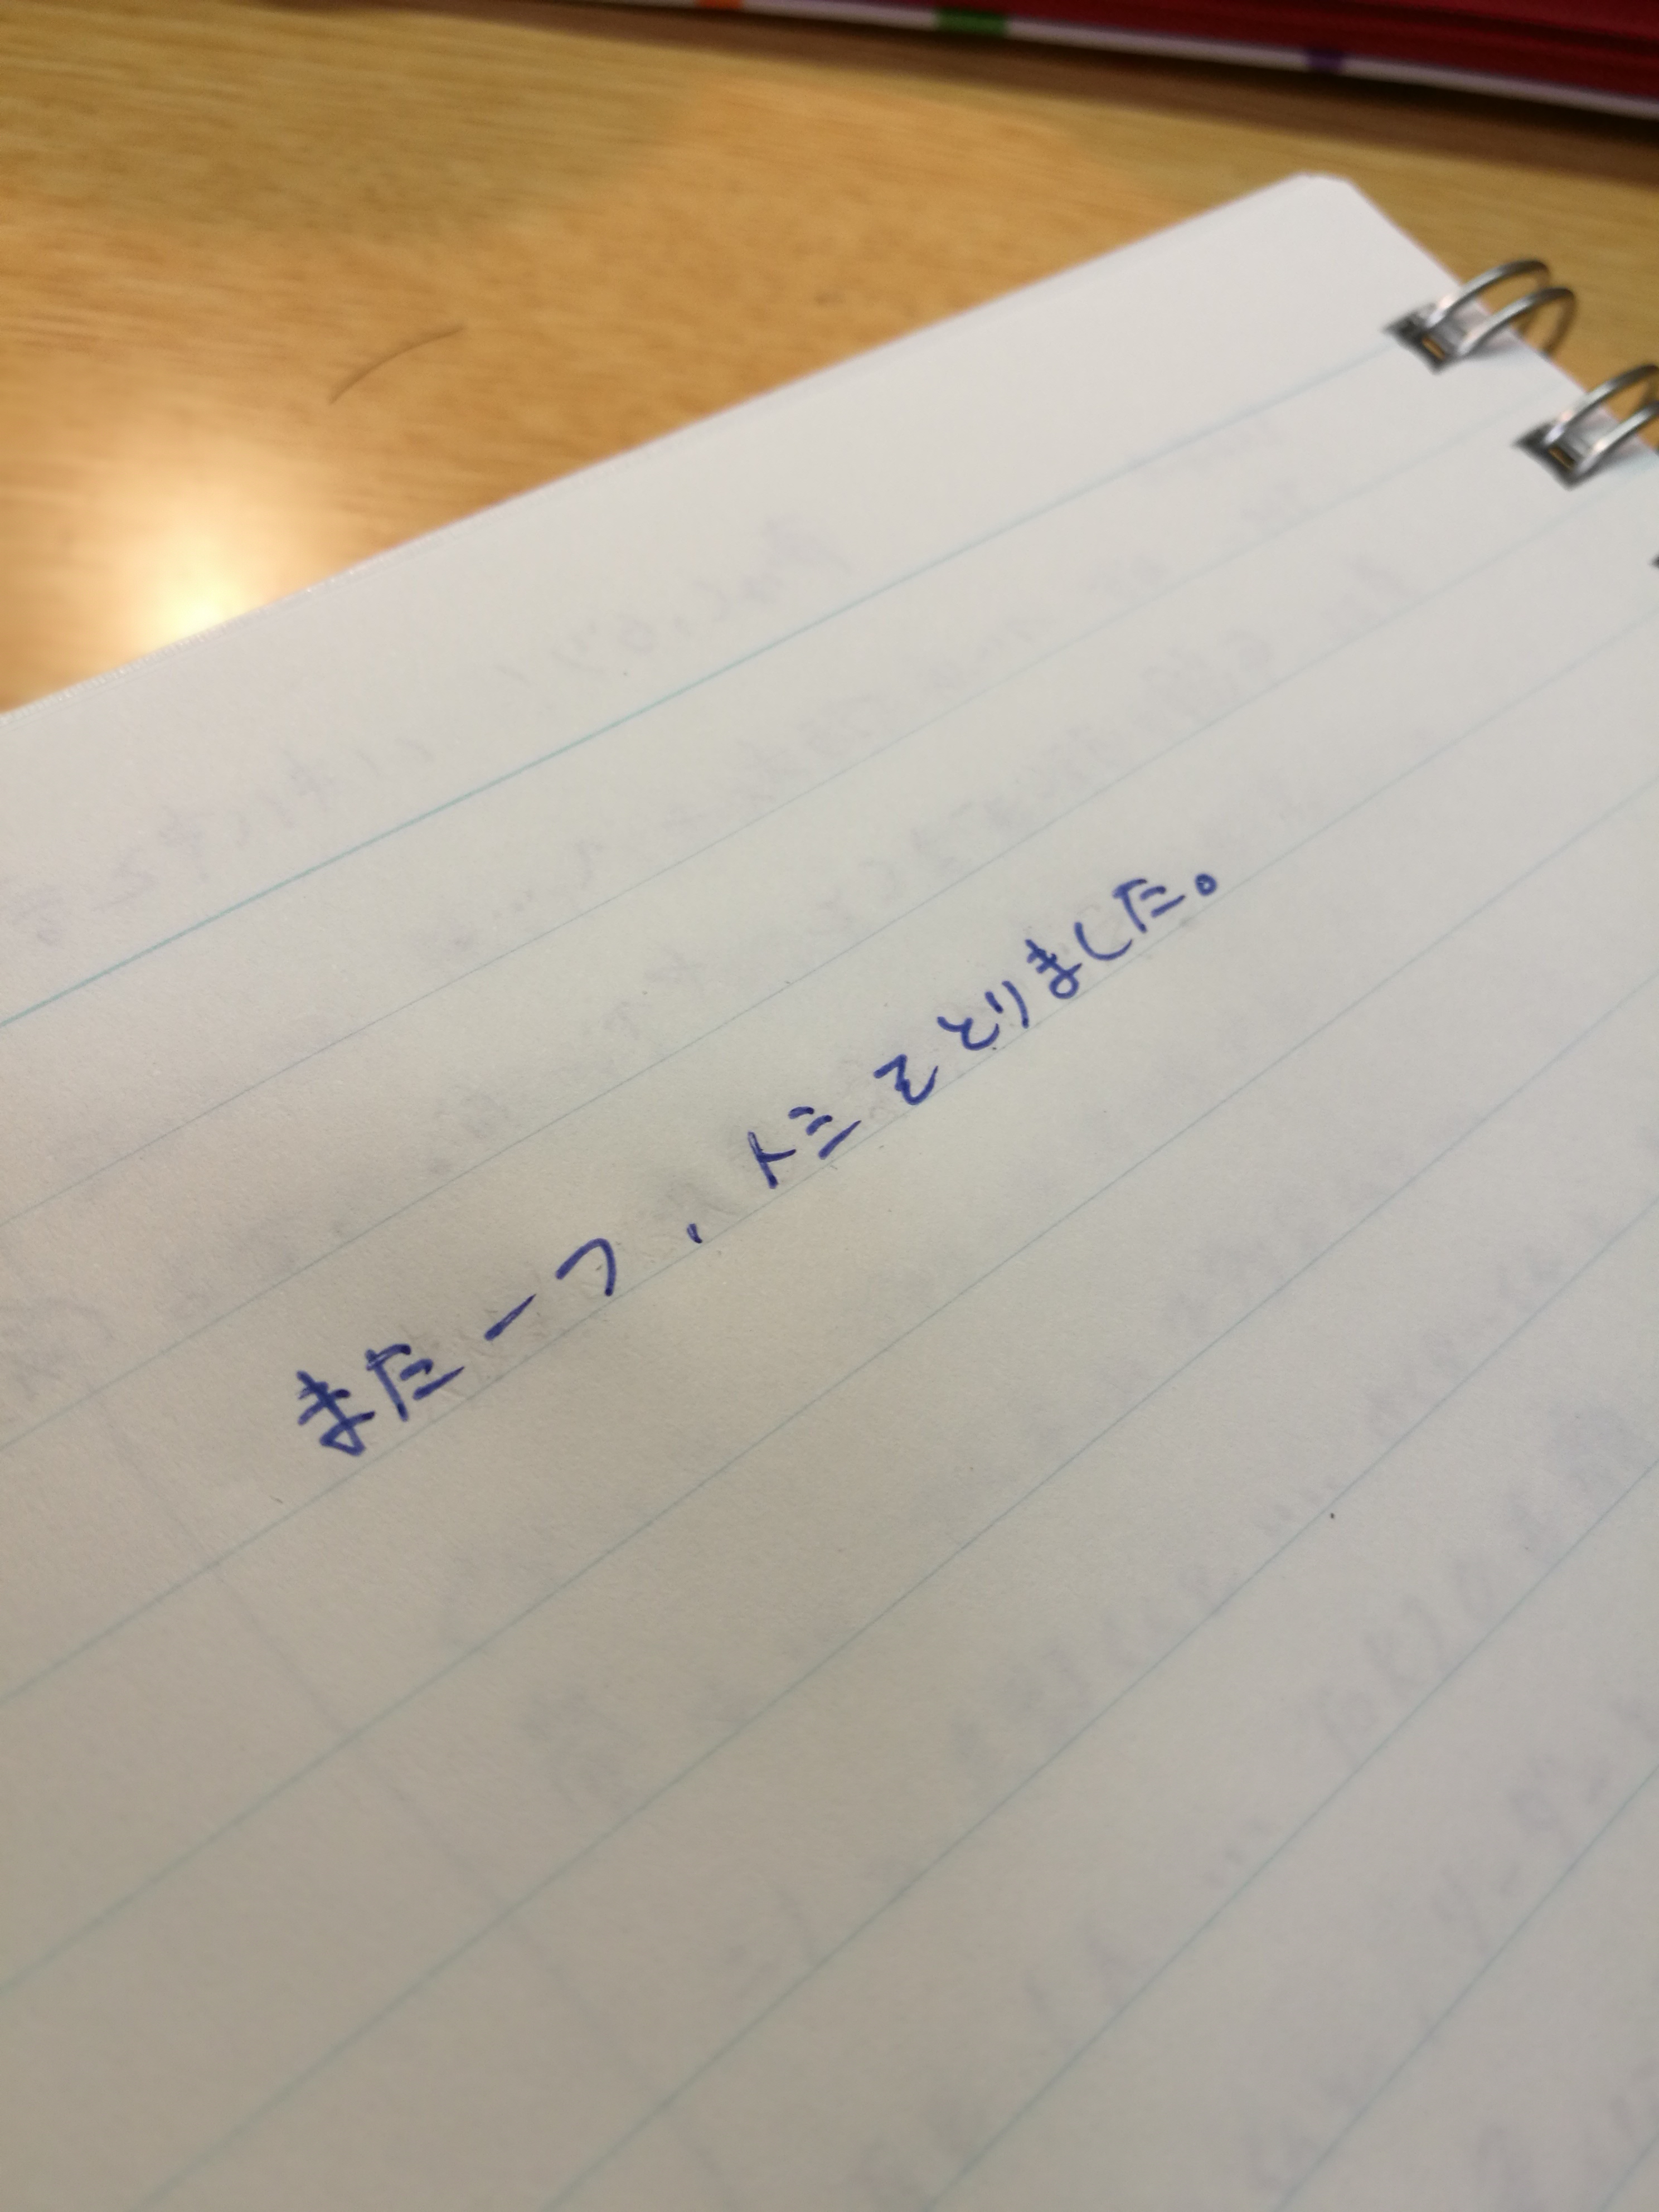 また一つ、トシをとりました。